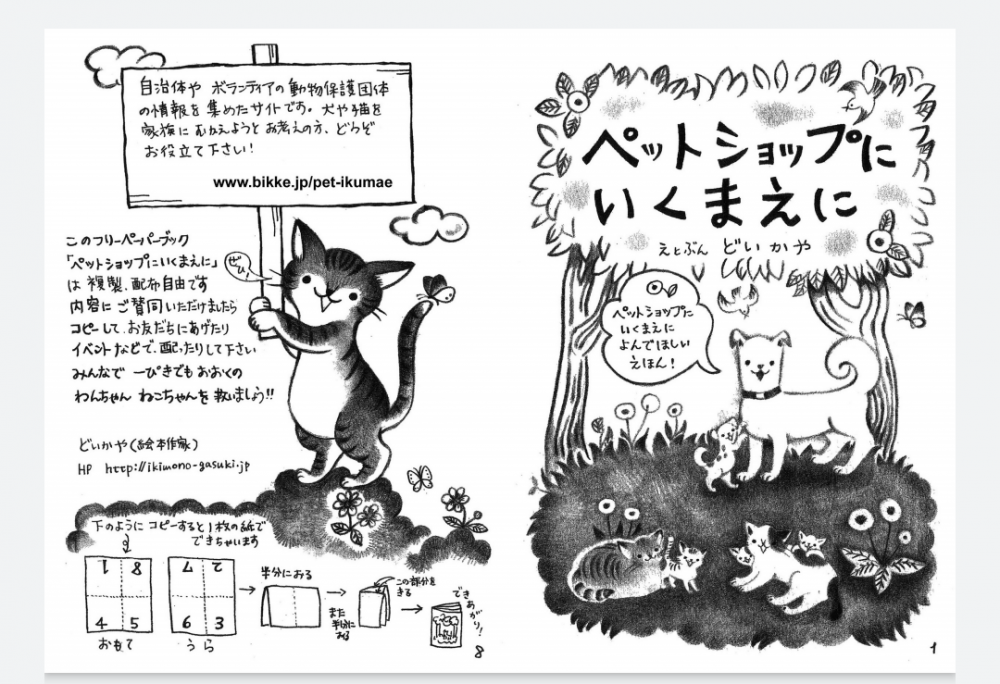 自治体や ボランティアの動物保護団体
の情報を集めたサイトです。犬や猫を
家族にむかえようとお考えの方、どうぞ
お役立て下さい!
www.bikke.jp/pet-ikumae
このフリーペーパーブック
「ペットショップにいくまえに」
は 複製、配布自由です
内容にご賛同いただけましたら
コピーして、お友だちにあげたり
イベントなどで、配ったりして下さい
みんなで 一ぴきでもおおくの
わんちゃん ねこちゃんを 救いましょう!!
ぜひ
どいかや(絵本作家)
HP http://ikimono-gasuki.jp
下のように コピーすると1枚の紙で
できちゃいます
1 8
4 5
おもて
7 2
6 3
うら
半分におる
また
半分に
おる
この部分を
きる
できあがり!
8
ペットショップに
いくまえに
えとぶん どいかや
ペットショップに
いくまえに
よんでほしい
えほん!
1